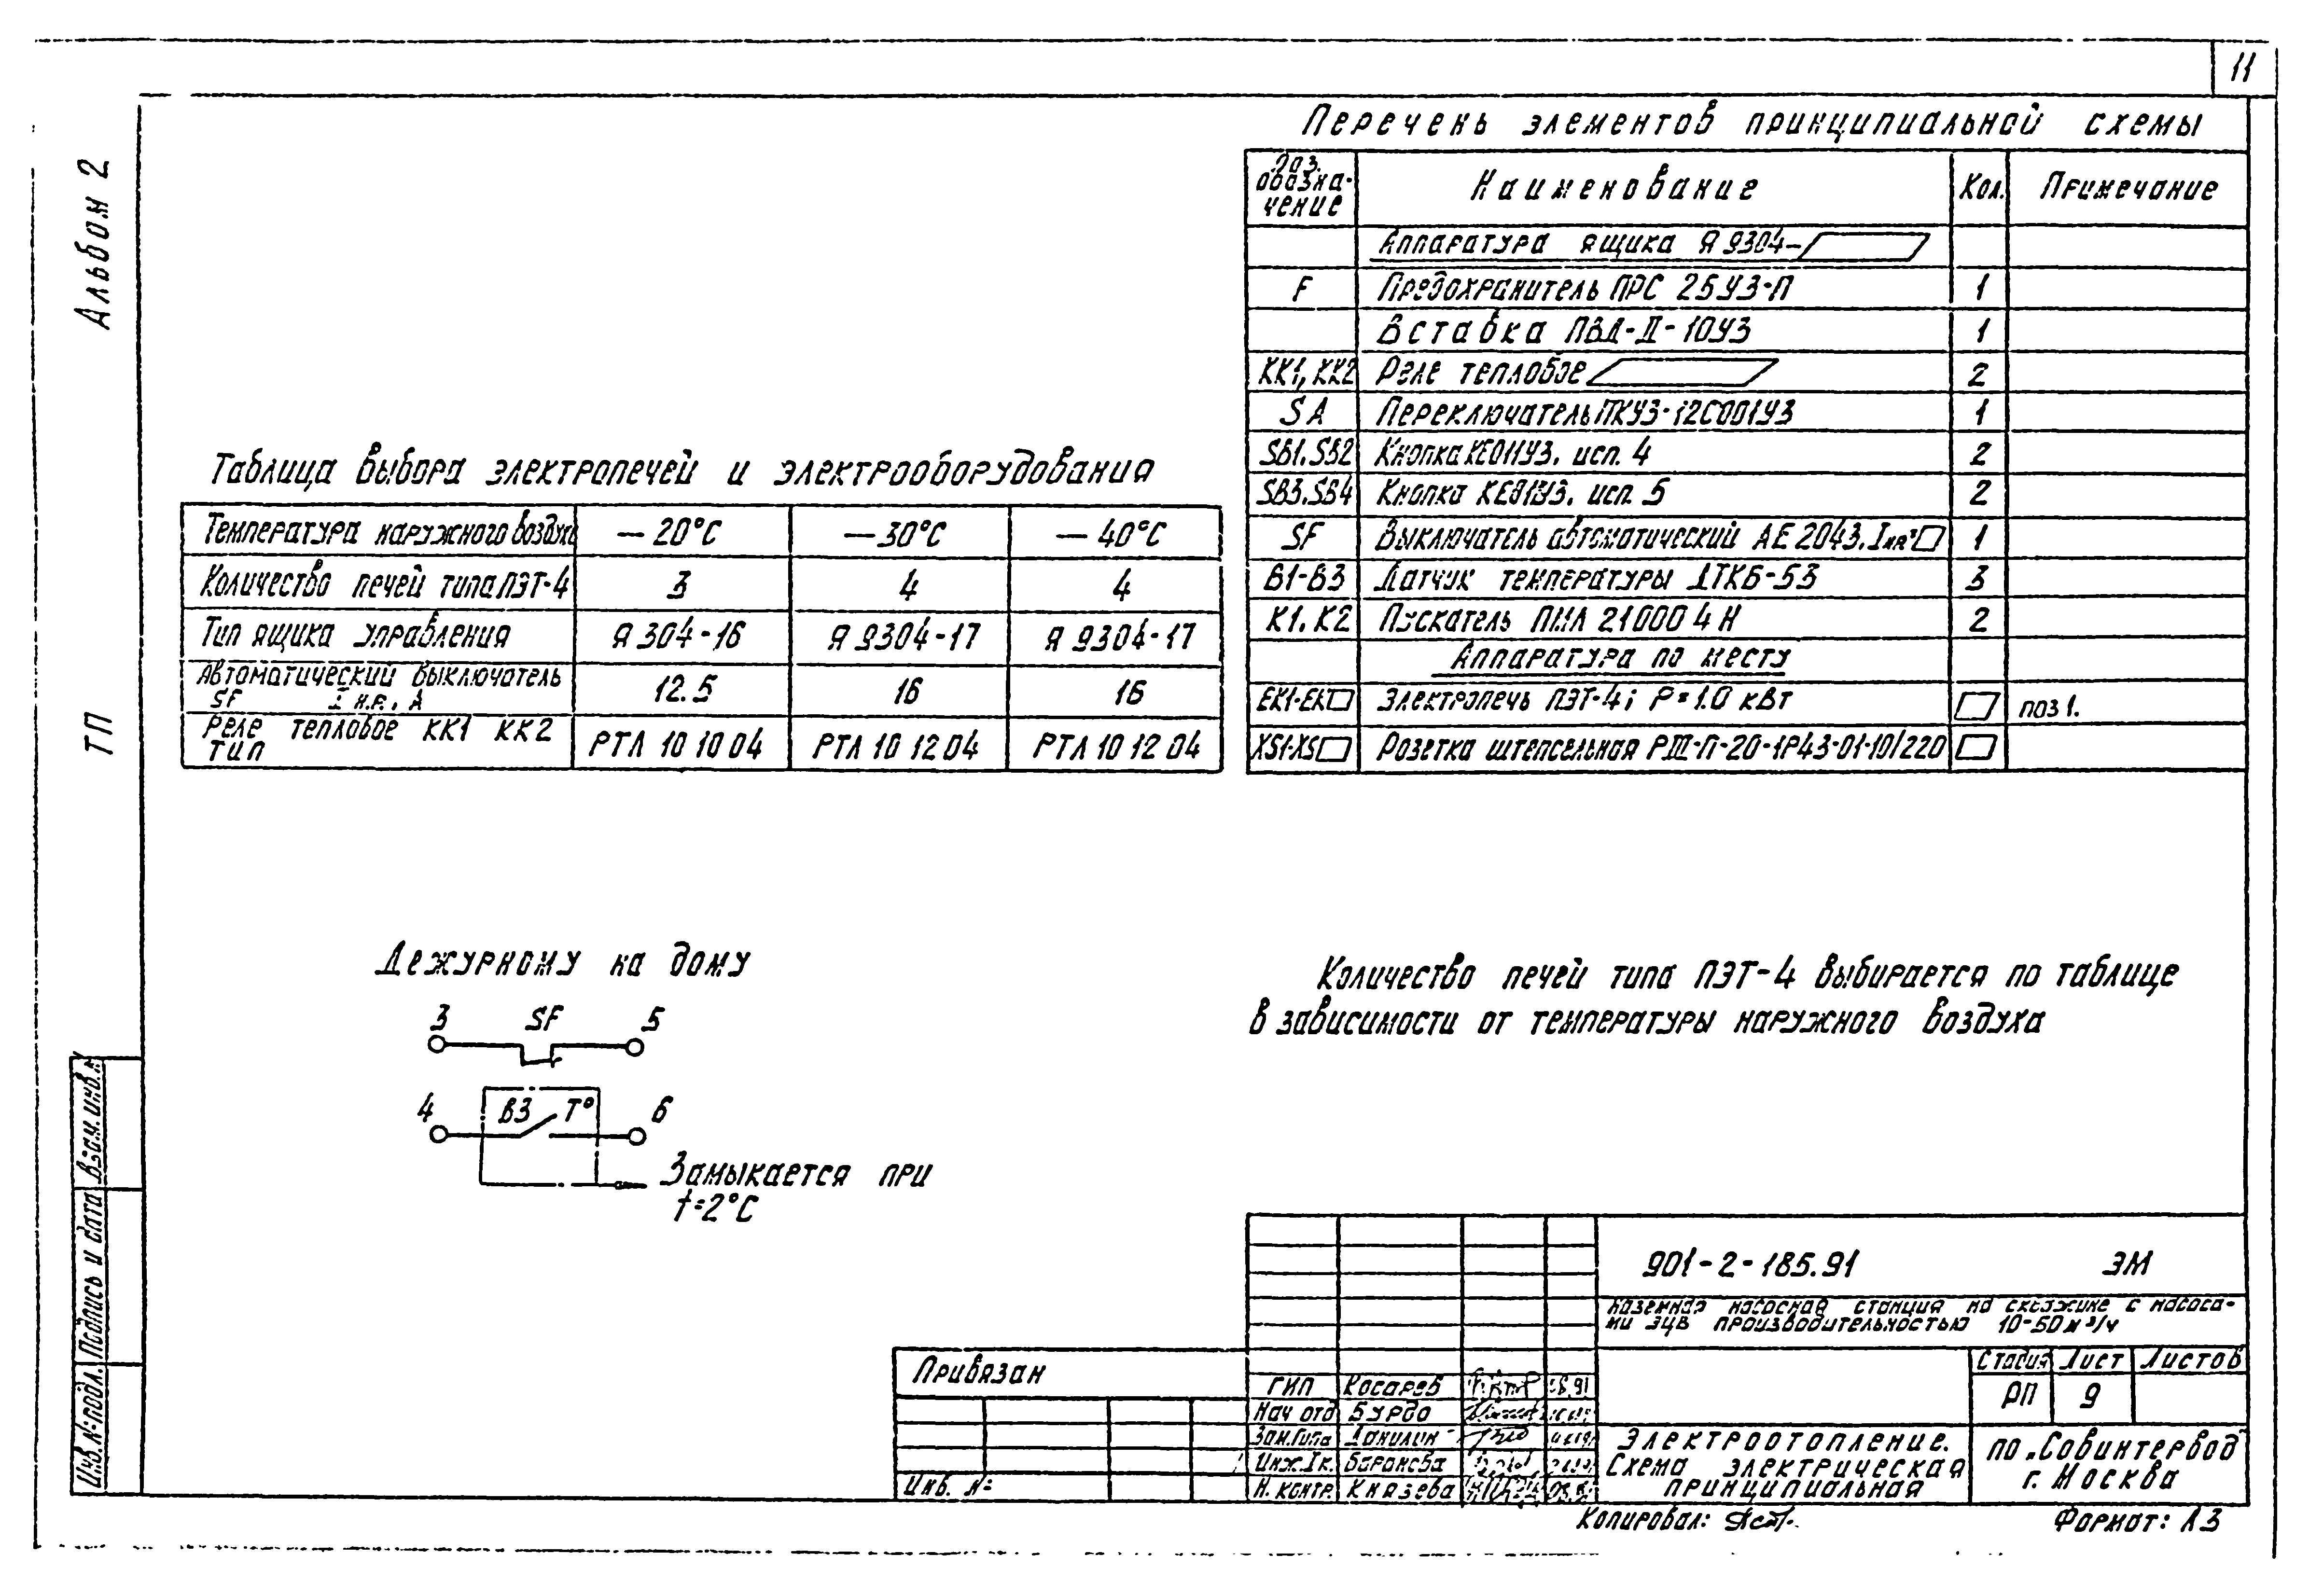 11
Альбом 2
ТП
Перечень элементов принципиальной схемы
Поз. обозна-чение Наименование Кол. Примечание
Аппаратура ящика Я 9304-
F Предохранитель ПРС 25У3-П 1
Вставка ПВД-II-10У3 1
КК1, КК2 Реле тепловое 2
SA Переключатель ПКУ3-12С001У3 1
SB1.SB2 Кнопка КЕ011У3. исп. 4 2
SB3.SB4 Кнопка КЕ011У3. исп. 5 2
SF Выключатель автоматический АЕ 2043. Iнр= 1
В1-В3 Датчик температуры ДТКБ-53 3
К1. К2 Пускатель ПМЛ 21000 4 Н 2
Аппаратура по месту
ЕК1-ЕК Электропечь ПЭТ-4; Р=1.0 кВт поз 1.
XS1-XS Розетка штепсельная РШ-П-20-1Р43-01-10/220
Таблица выбора электропечей и электрооборудования
Температура наружного воздуха —20°С —30°С —40°С
Количество печей типа ПЭТ-4 3 4 4
Тип ящика управления Я 304-16 Я 9304-17 Я 9304-17
Автоматический выключатель
SF I н.р., А 12.5 16 16
Реле тепловое КК1 КК2
тип РТЛ 10 10 04 РТЛ 10 12 04 РТЛ 10 12 04
Дежурному на дому
3 SF 5
4 В3 Т° 6
Замыкается при
t=2°С
Количество печей типа ПЭТ-4 выбирается по таблице
в зависимости от температуры наружного воздуха
901-2-185.91 ЭМ
Наземная насосная станция на скважине с насоса-
ми ЭЦВ производительностью 10-50 м³/ч
Стадия Лист Листов
РП 9
Привязан
Инв. №
ГИП Косарев
Нач отд Бурда
Зам.Гипа Данилин
Инж.Iк. Баранова
Н. контр. Князева
Электроотопление.
Схема электрическая
принципиальная
по „Совинтервод"
г. Москва
Копировал:
Формат: А3
Взам. инв. №
Подпись и дата
Инв. № подл.